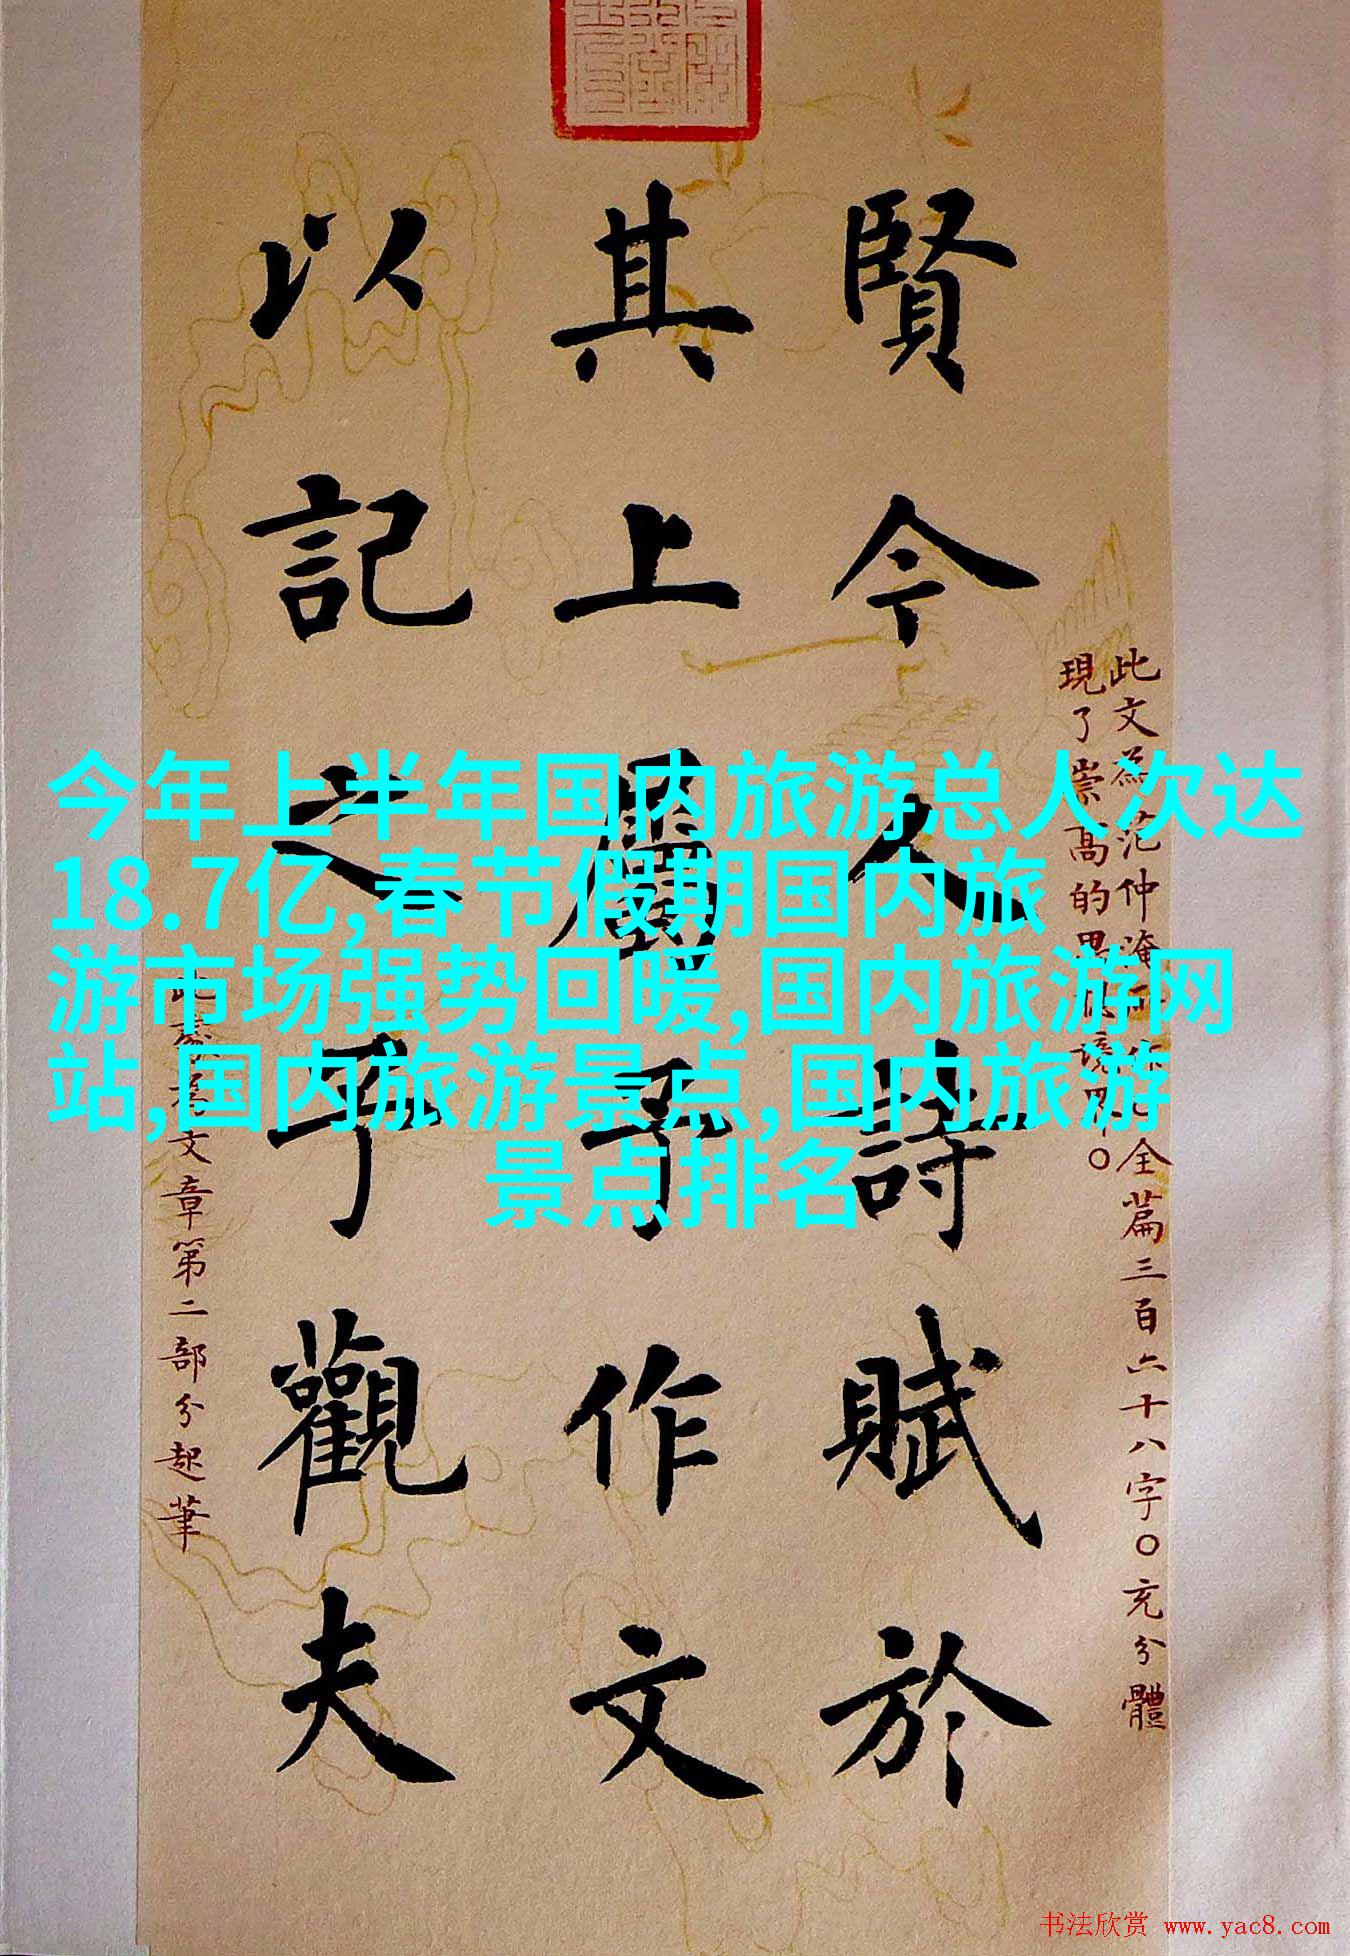 今年上半年国内旅游总人次达
18.7亿,春节假期国内旅
游市场强势回暖,国内旅游网
站,国内旅游景点,国内旅游
景点排名
此文為范仲淹 全篇三百六十八字〇充分體
現了崇高的思 境界〇
賢今人詩賦於
其上屬予作文
以記之予觀夫
此 為文章第二部分起筆
书法欣赏 www.yac8.com